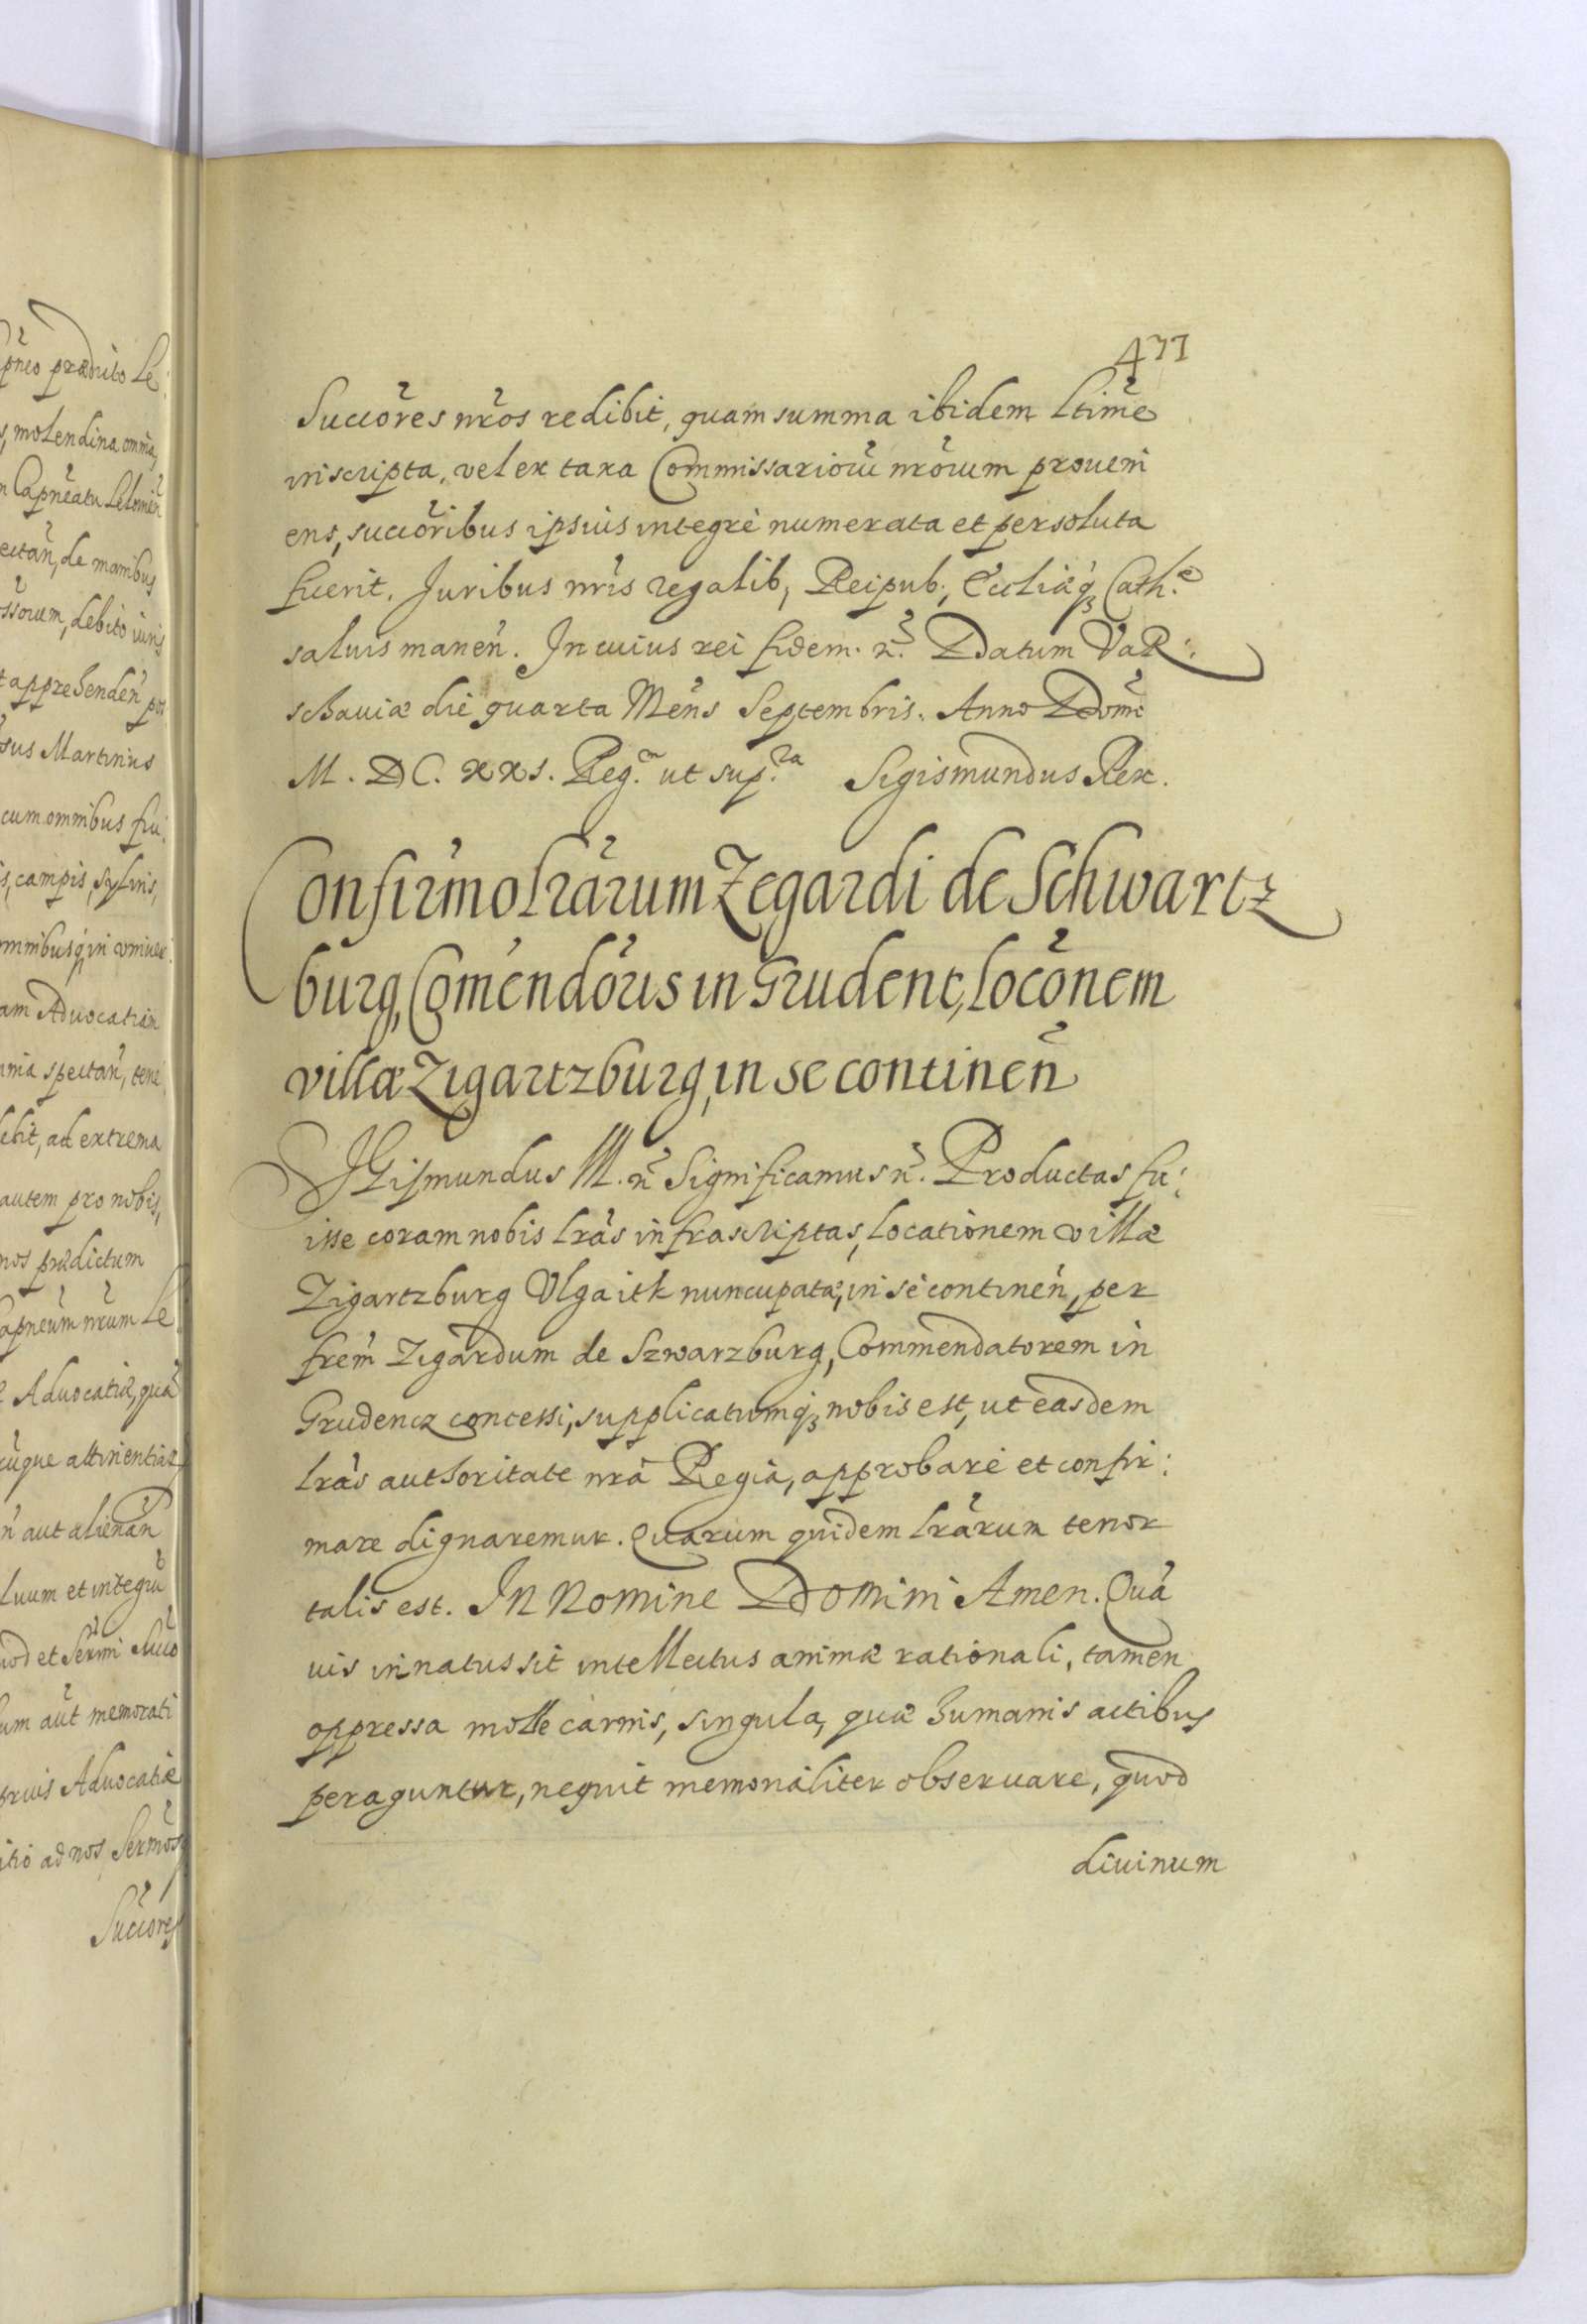 pneo prædicto Le:
s, molendina omnia,
n Capneatu Lelomen
ectan, de manibus
ssorum, debito iuris
t apprehenden pos
sus Martinus
cum omnibus fru:
s, campis, sylvis,
omnibusq, in univer:
am Advocatiam
nia spectan, tene
debit, ad extrema
autem pro nobis,
nos prædictum
Capneum nrum Le
Advocatiæ, quã
cũque attinentias
ñ aut alienan
luum et integrũ
uod et Sermi Succ
um aut memorati
pruis Advocatiæ
itio ad nos, Sermos
Succores
477
Succores nr̃os redibit, quam summa ibidem ltime
inscripta, vel ex taxa Commissarioru nrorum proveni
ens, succoribus ipsius integrè numerata et persoluta
fuerit. Juribus nris regalib, Reipub., Eccliæq, Cath.æ
salvis manen. In cuius rei fidem. ñ. Datum VaR:
schaviæ die quarta Mens Septembris. Anno Domi
M. DC. XXI. Reg.m ut sup.ra Sigismundus Rex.
Confirmo lrarum Zegardi de Schwartz
burg, Comendoris in Grudent, locõnem
villæ Zigartzburg, in se continen
SIGismundus III. ñ Significamus ñ. Productas fu:
isse coram nobis lras infrascriptas, locationem villæ
Zigartzburg Ulgaitk nuncupatæ, in se continen, per
frem Zigardum de Szwarzburg, Commendatorem in
Grudencz concessi, supplicatumq nobis est, ut easdem
lras authoritate nra Regia, approbare et confir:
mare dignaremur. Quarum quidem lrarum tenor
talis est. In Nomine Domini Amen. Quã
vis innatus sit intellectus animæ rationali, tamen
oppressa molle carnis, singula, quæ humanis actibus
peraguntur, nequit memorialiter observare, quod
divinum